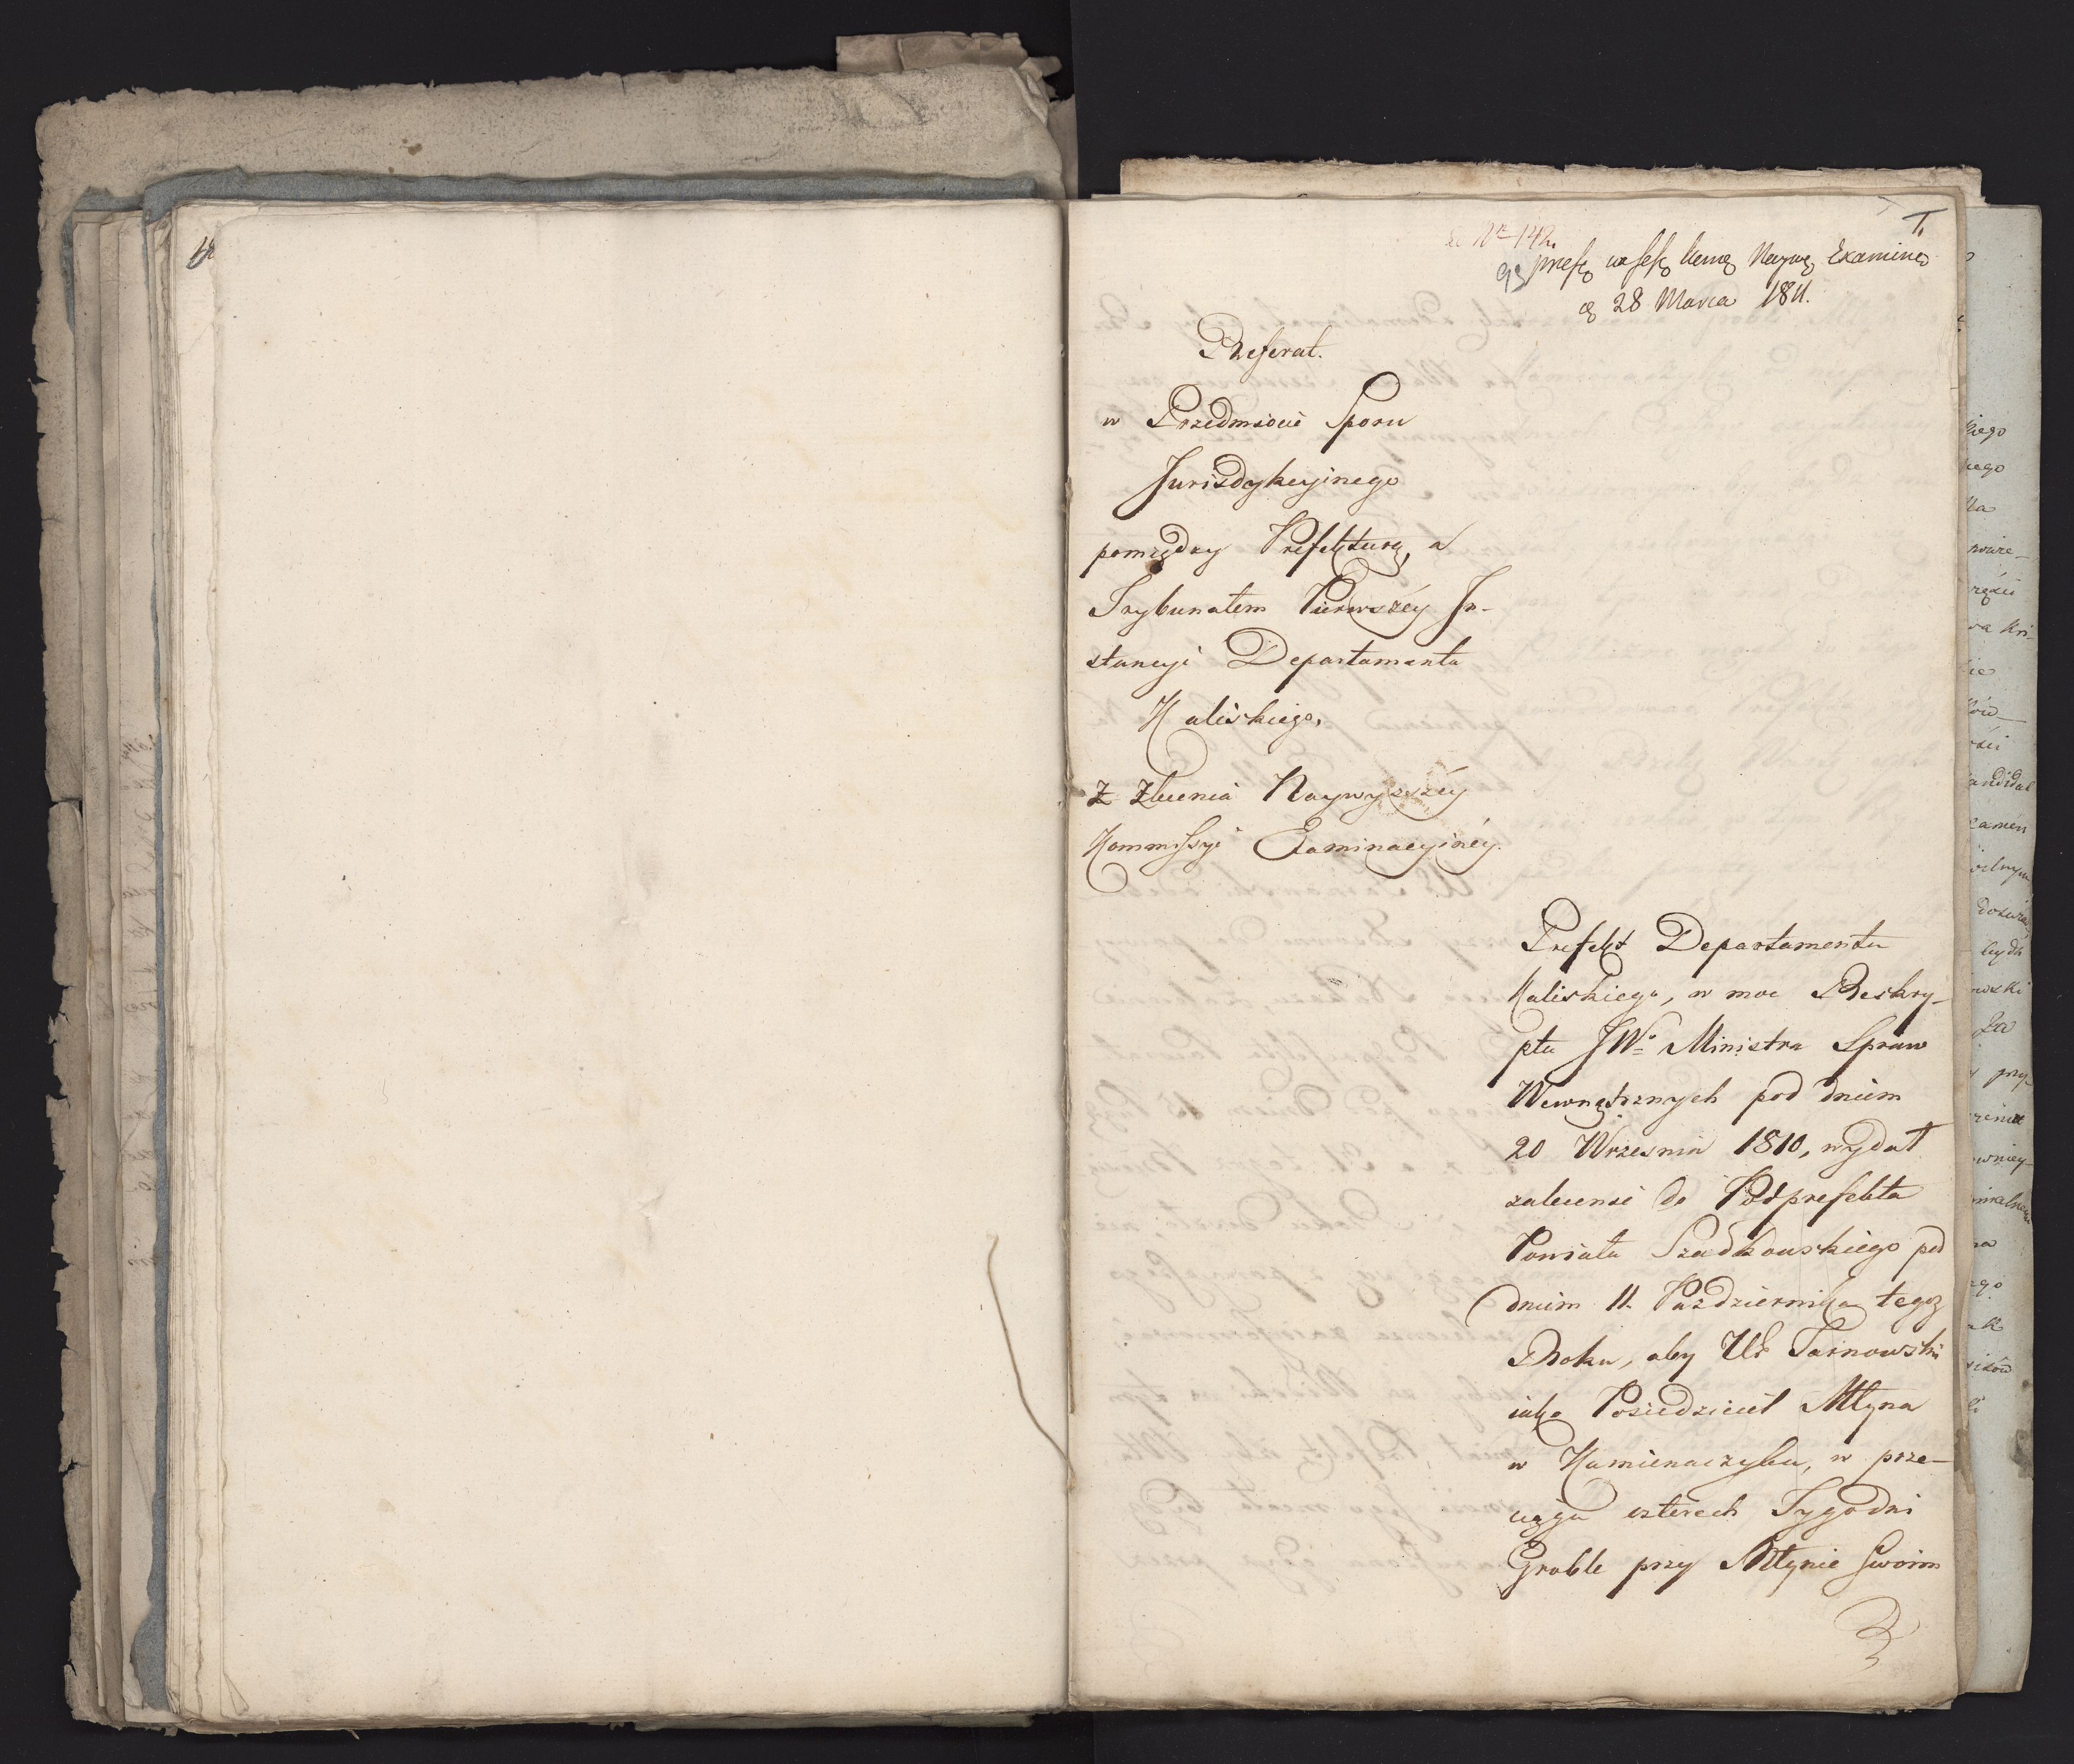 T.
ad Nr 142.
93 præs. na ses. Kom. Nayw. Examin.
d. 28 Marca 1811.
Referat.
w Przedmiocie Sporu
Jurisdykcyinego
pomiędzy Prefekturą, a
Trybunałem Pierwszéy In-
stancyi Departamentu
Kaliskiego,
Z Zlecenia Naywyższéy
Kommissyi Examinacyinéy.
Prefekt Departamentu
Kaliskiego, w moc Reskry-
ptu JWo Ministra Spraw
Wewnętrznych pod dniem
20 Wrzesnia 1810, wydał
zalecenie do Podprefekta
Powiatu Szadkowskiego pod
dniem 11. Października tegoż
Roku, aby Ur Tarnowski
iako Posiedziciel Młyna
w Kamienaczyku, w prze-
ciągu czterech Tygodni
Groble przy Młynie Swoim